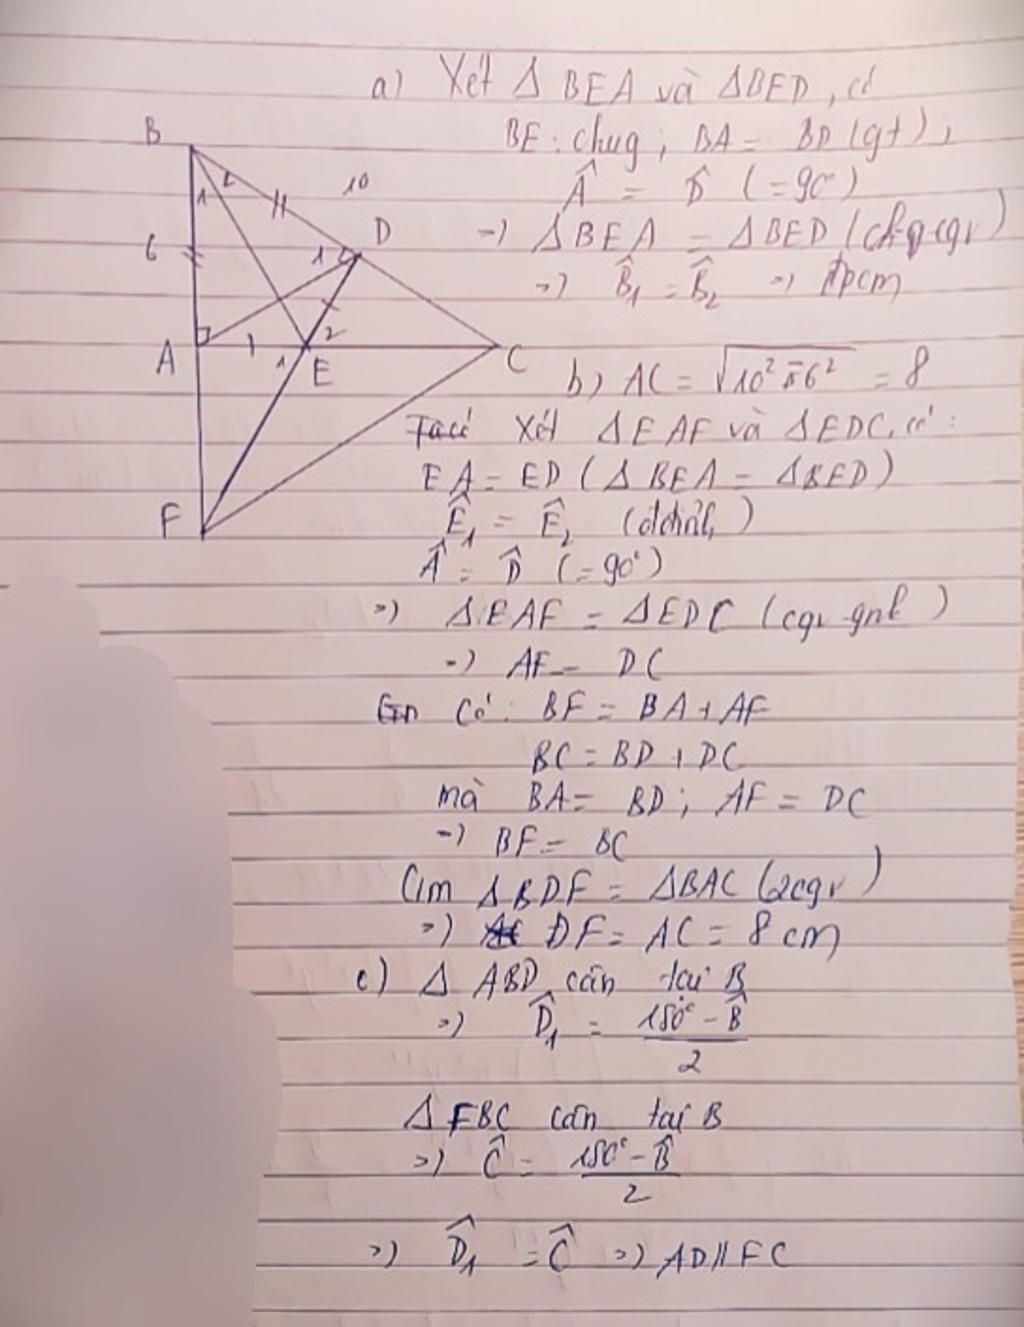 a) Xét Δ BEA và ΔBED, có
BE: chug; BA = BD (gt);
Â = D̂ (=90°)
=) ΔBEA = ΔBED (ch-cgv)
=) B̂₁ = B̂₂ =) đpcm
B
1 2
10
6
D
1
A
1
2
E
C
F
b) AC = √10² - 6² = 8
Xét ΔEAF và ΔEDC, có:
EA = ED (ΔBEA = ΔBED)
Ê₁ = Ê₂ (đđỉnh)
Â = D̂ (=90°)
=) ΔEAF = ΔEDC (cgv gnk)
=) AF = DC
Có: BF = BA + AF
BC = BD + DC
mà BA = BD; AF = DC
=) BF = BC
Cm ΔBDF = ΔBAC (2cgv)
=) DF = AC = 8 cm
c) Δ ABD cân tại B
=) D̂₁ = 180° - B̂
2
Δ FBC cân tại B
=) Ĉ = 180° - B̂
2
=) D̂₁ = Ĉ =) AD // FC